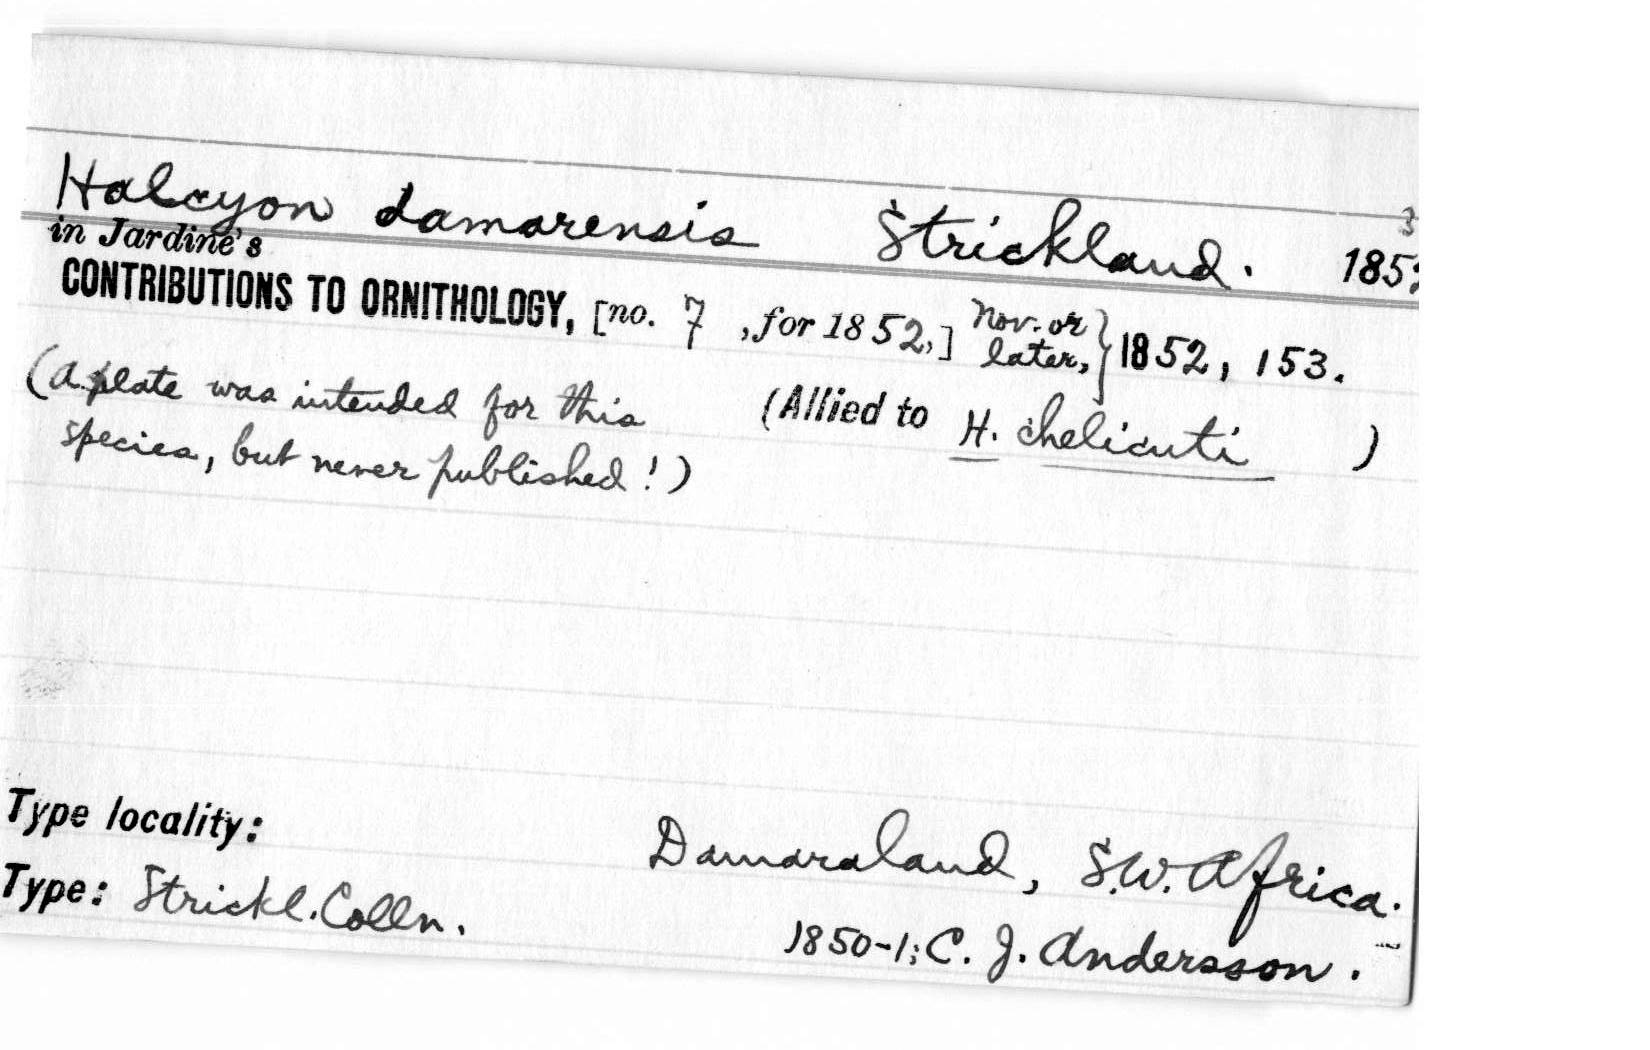 Halcyon damarensis Strickland. 185
3
in Jardine's
CONTRIBUTIONS TO ORNITHOLOGY, [no. 7 , for 1852,] Nov. or later,} 1852, 153.
(A plate was intended for this
species, but never published!)
(Allied to H. chelicuti )
Type locality:
Damaraland, S.W. Africa.
Type: Strickl. Colln.
1850-1; C. J. Andersson.